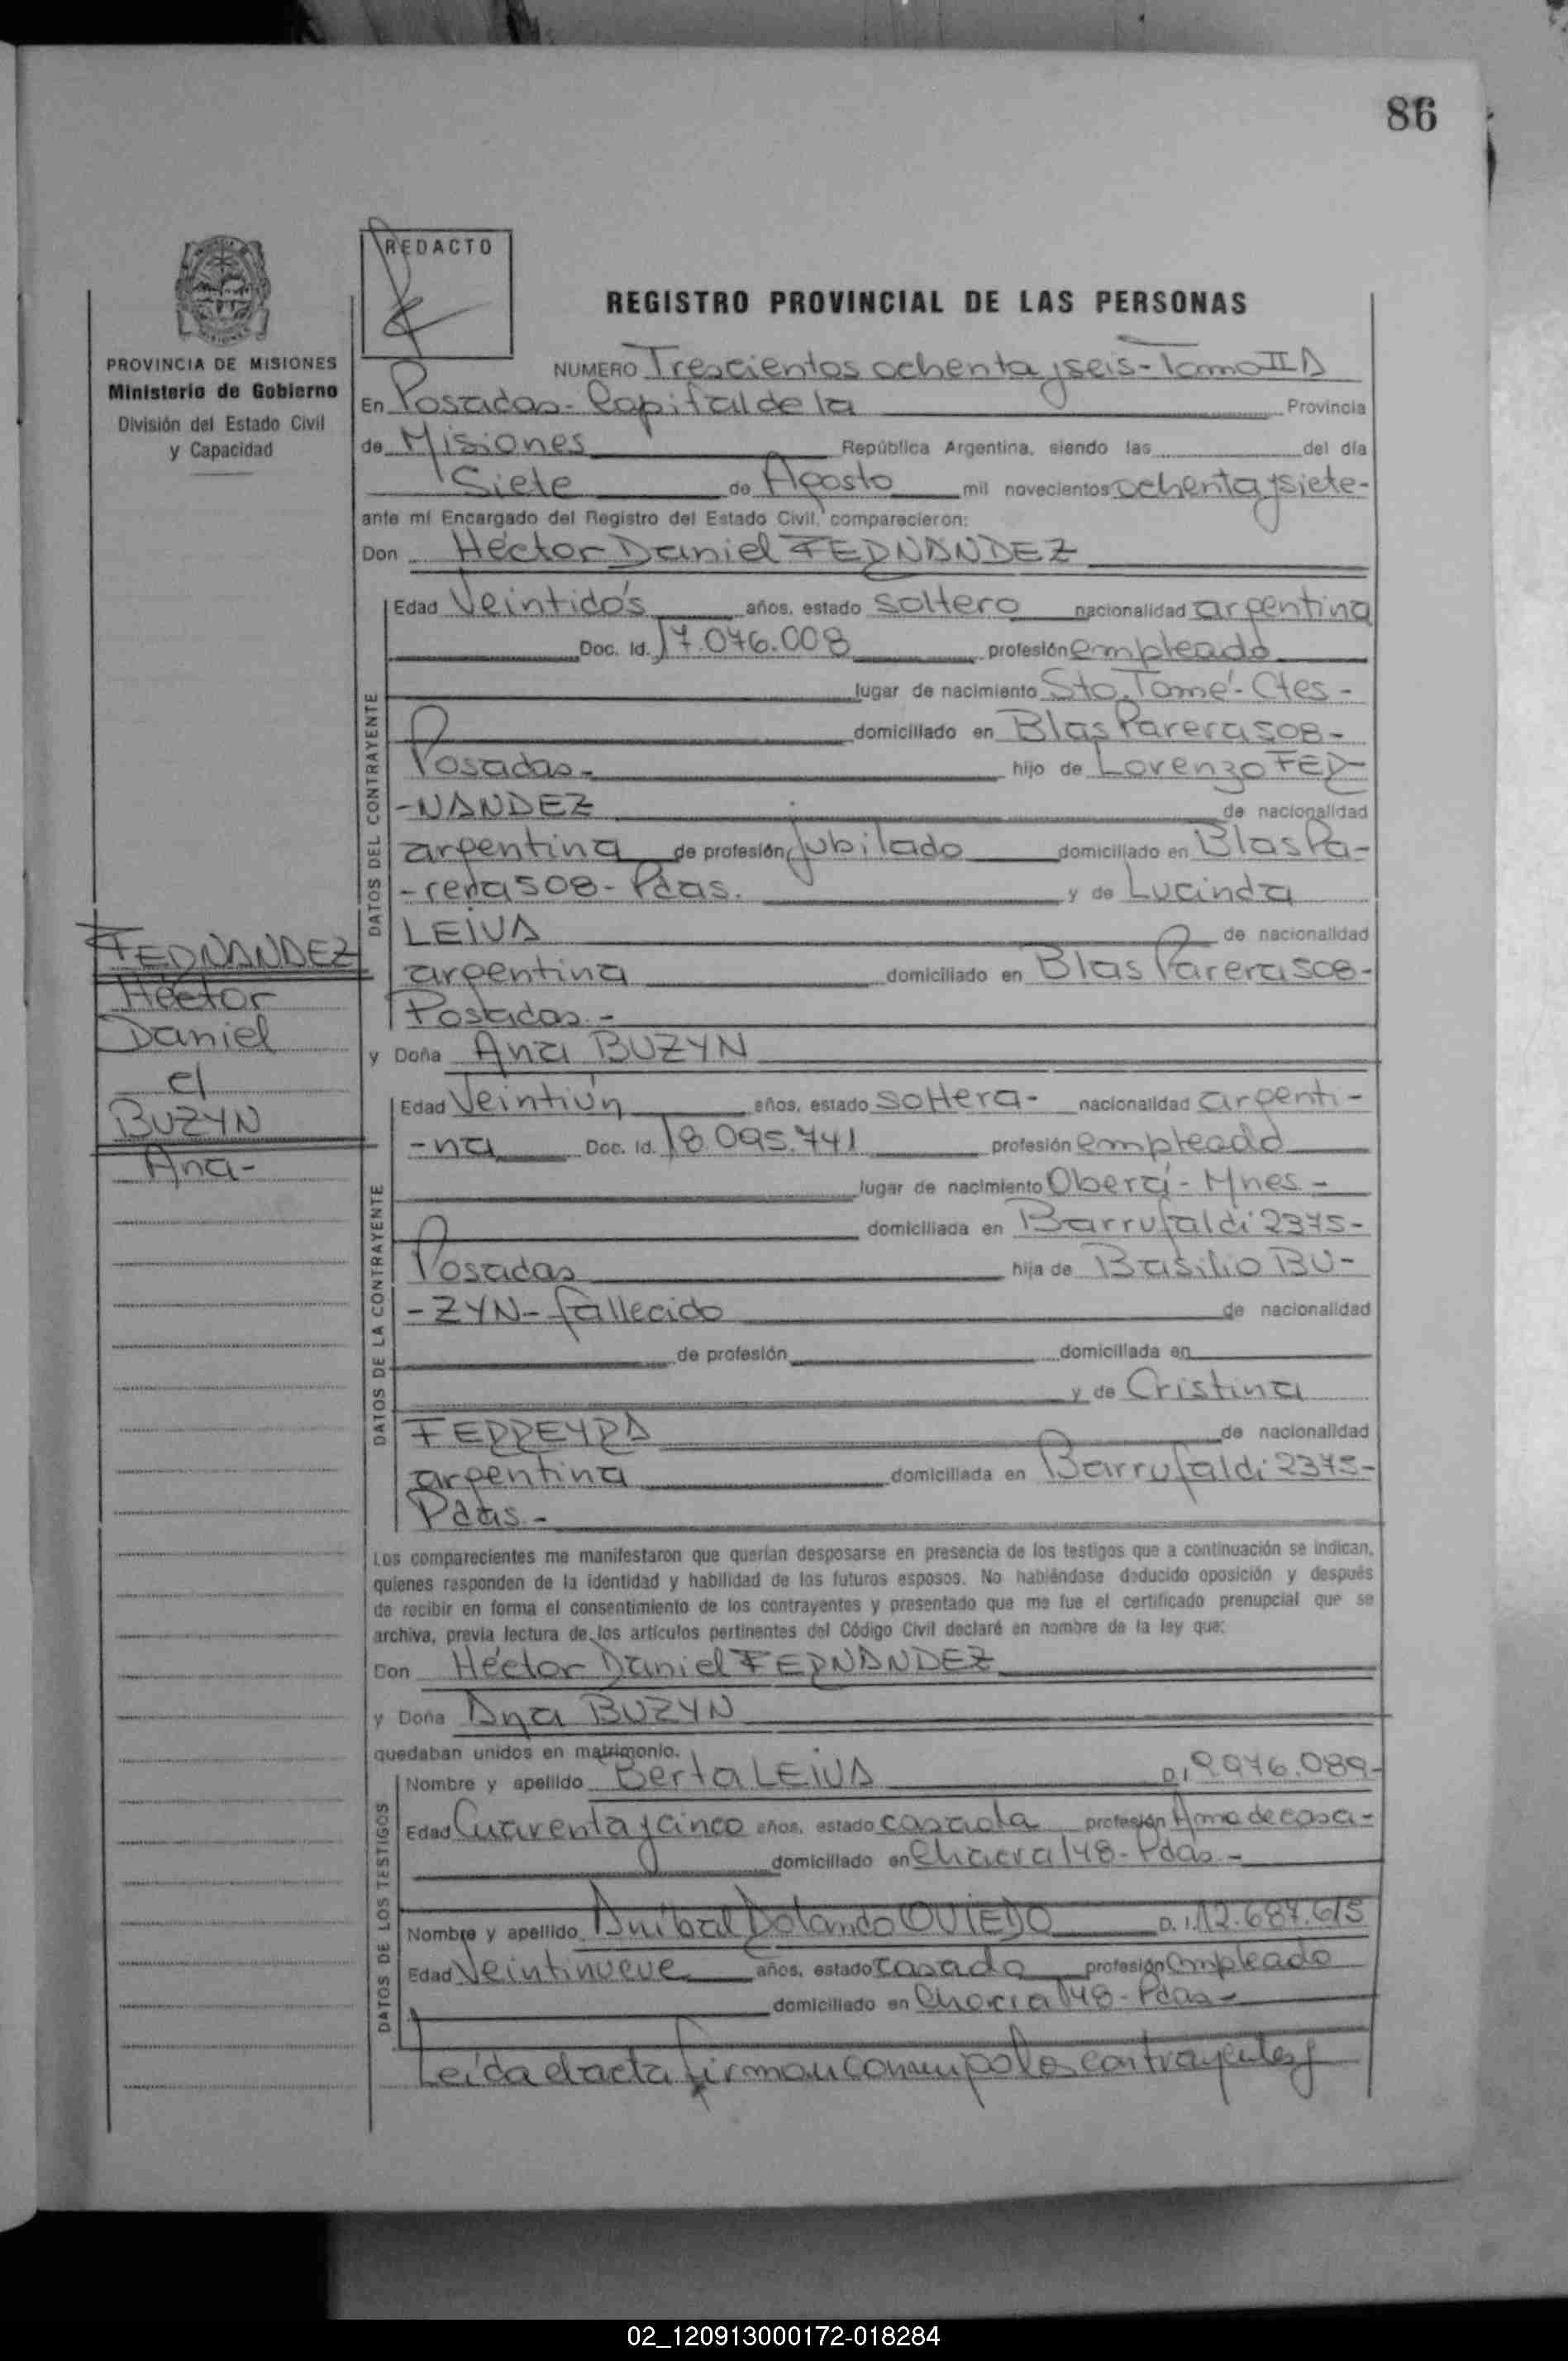 86
REDACTO
REGISTRO PROVINCIAL DE LAS PERSONAS
PROVINCIA DE MISIONES
Ministerio de Gobierno
División del Estado Civil
y Capacidad
NUMERO Trescientos ochenta y seis - Tomo II A
En Posadas - Capital de la Provincia
de Misiones República Argentina, siendo las del día
Siete de Agosto mil novecientos ochenta y siete -
ante mí Encargado del Registro del Estado Civil, comparecieron:
Don Héctor Daniel FERNANDEZ
DATOS DEL CONTRAYENTE
Edad Veintidós años, estado soltero nacionalidad argentina
Doc. Id. 17.076.008 profesión empleado
lugar de nacimiento Sto. Tomé - Ctes -
domiciliado en Blas Parera 508 -
Posadas - hijo de Lorenzo FER-
-NANDEZ de nacionalidad
argentina de profesión jubilado domiciliado en Blas Pa-
-rera 508 - Pdas. y de Lucinda
LEIVA de nacionalidad
argentina domiciliado en Blas Parera 508 -
Posadas. -
FERNANDEZ
Héctor
Daniel
c/
BUZYN
Ana -
y Doña Ana BUZYN
DATOS DE LA CONTRAYENTE
Edad Veintiún años, estado soltera - nacionalidad argenti -
- na Doc. Id. 18.095.741 profesión empleada
lugar de nacimiento Oberá - Mnes -
domiciliada en Barrufaldi 2375 -
Posadas hija de Basilio BU -
- ZYN - fallecido de nacionalidad
de profesión domiciliada en
y de Cristina
FERREYRA de nacionalidad
argentina domiciliada en Barrufaldi 2375 -
Pdas. -
Los comparecientes me manifestaron que querían desposarse en presencia de los testigos que a continuación se indican,
quienes responden de la identidad y habilidad de los futuros esposos. No habiéndose deducido oposición y después
de recibir en forma el consentimiento de los contrayentes y presentado que me fue el certificado prenupcial que se
archiva, previa lectura de los artículos pertinentes del Código Civil declaré en nombre de la ley que:
Don Héctor Daniel FERNANDEZ
y Doña Ana BUZYN
quedaban unidos en matrimonio.
DATOS DE LOS TESTIGOS
Nombre y apellido Berta LEIVA D.I. 9.976.089 -
Edad Cuarenta y cinco años, estado casada profesión Ama de casa -
domiciliado en Chacra 148 - Pdas -
Nombre y apellido Anibal Rolando OVIEDO D.I. 12.687.615
Edad Veintinueve años, estado casado profesión empleado
domiciliado en Chacra 148 - Pdas -
Leída el acta firman conmigo los contrayentes y
02_120913000172-018284